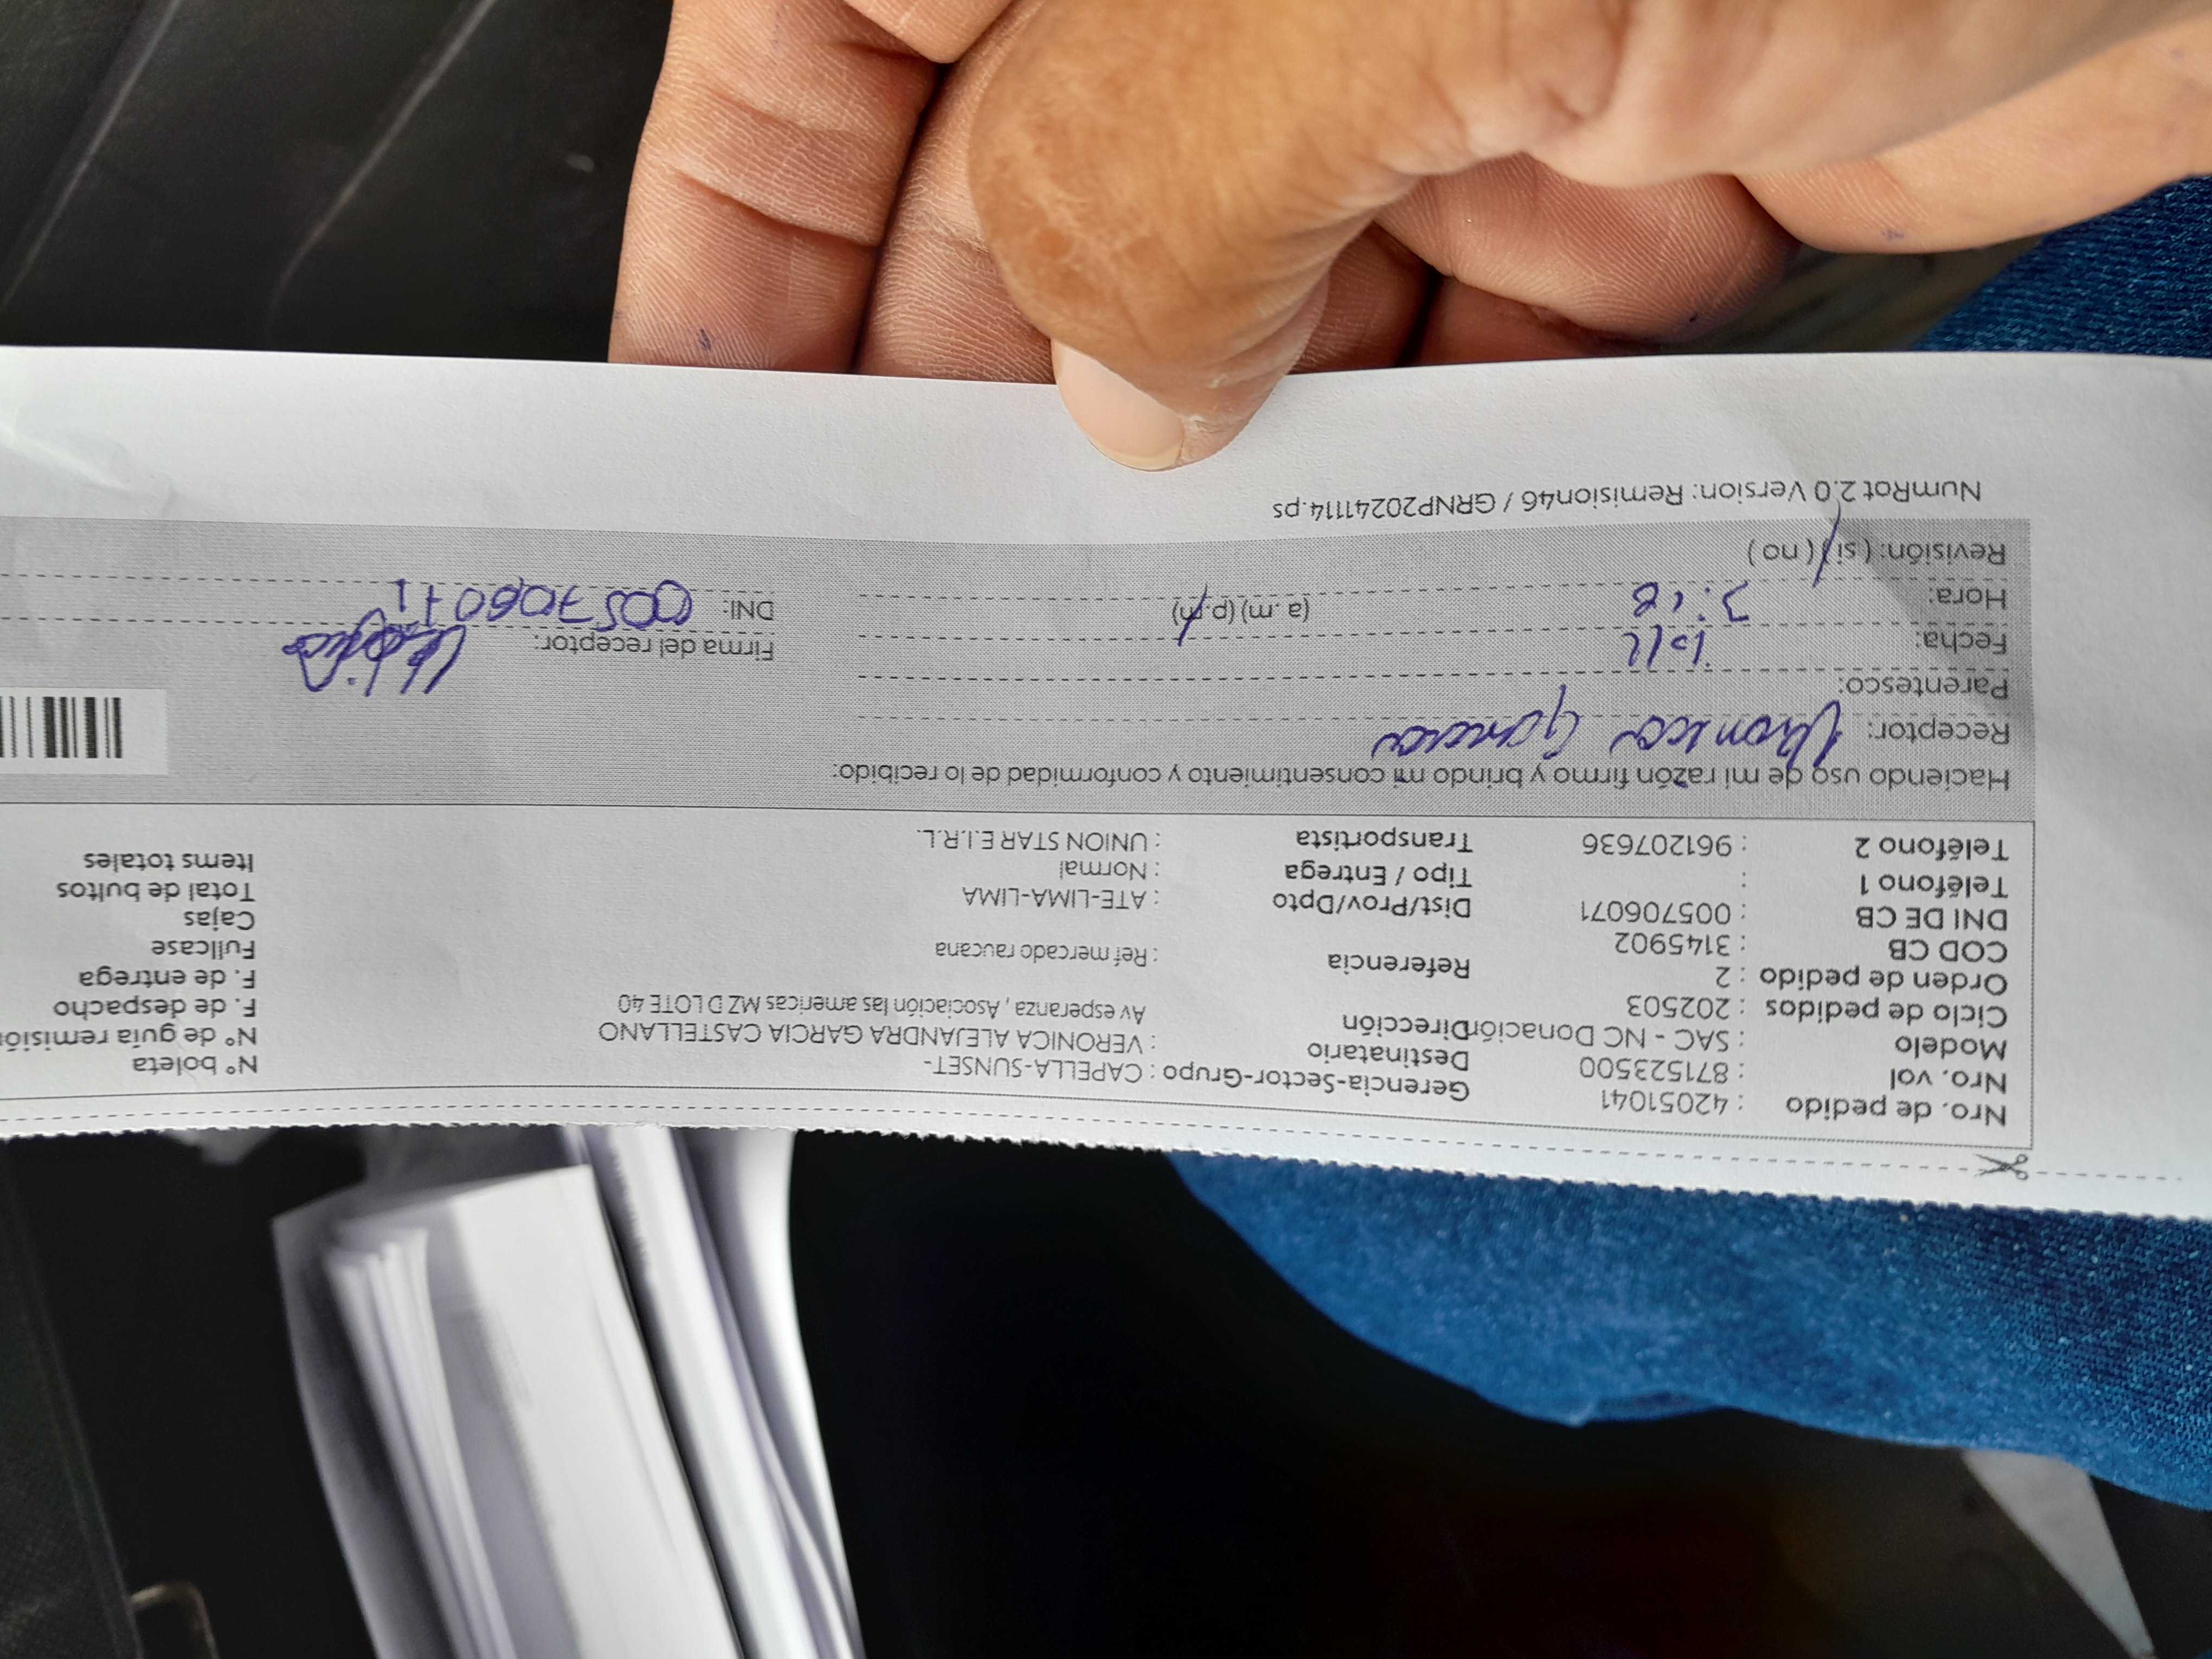 Nro. de pedido : 42051041 Gerencia-Sector-Grupo : CAPELLA-SUNSET- Nº boleta
Nro. vol : 871523500 Destinatario : VERONICA ALEJANDRA GARCIA CASTELLANO Nº de guía remisió
Modelo : SAC - NC Donación Dirección Av esperanza , Asociación las americas MZ D LOTE 40 F. de despacho
Ciclo de pedidos : 202503 F. de entrega
Orden de pedido : 2 Referencia : Ref mercado raucana Fullcase
COD CB : 3145902 Cajas
DNI DE CB : 005706071 Dist/Prov/Dpto : ATE-LIMA-LIMA Total de bultos
Teléfono 1 : Tipo / Entrega : Normal Items totales
Teléfono 2 : 961207636 Transportista : UNION STAR E.I.R.L.
Haciendo uso de mi razón firmo y brindo mi consentimiento y conformidad de lo recibido:
Receptor: Veronica Garcia
Parentesco:
Fecha: Firma del receptor:
Hora: (a. m) (p. m) DNI: 005706071
Revisión: ( si ) ( no )
NumRot 2.0 Version: Remision46 / GRNP20241114.ps